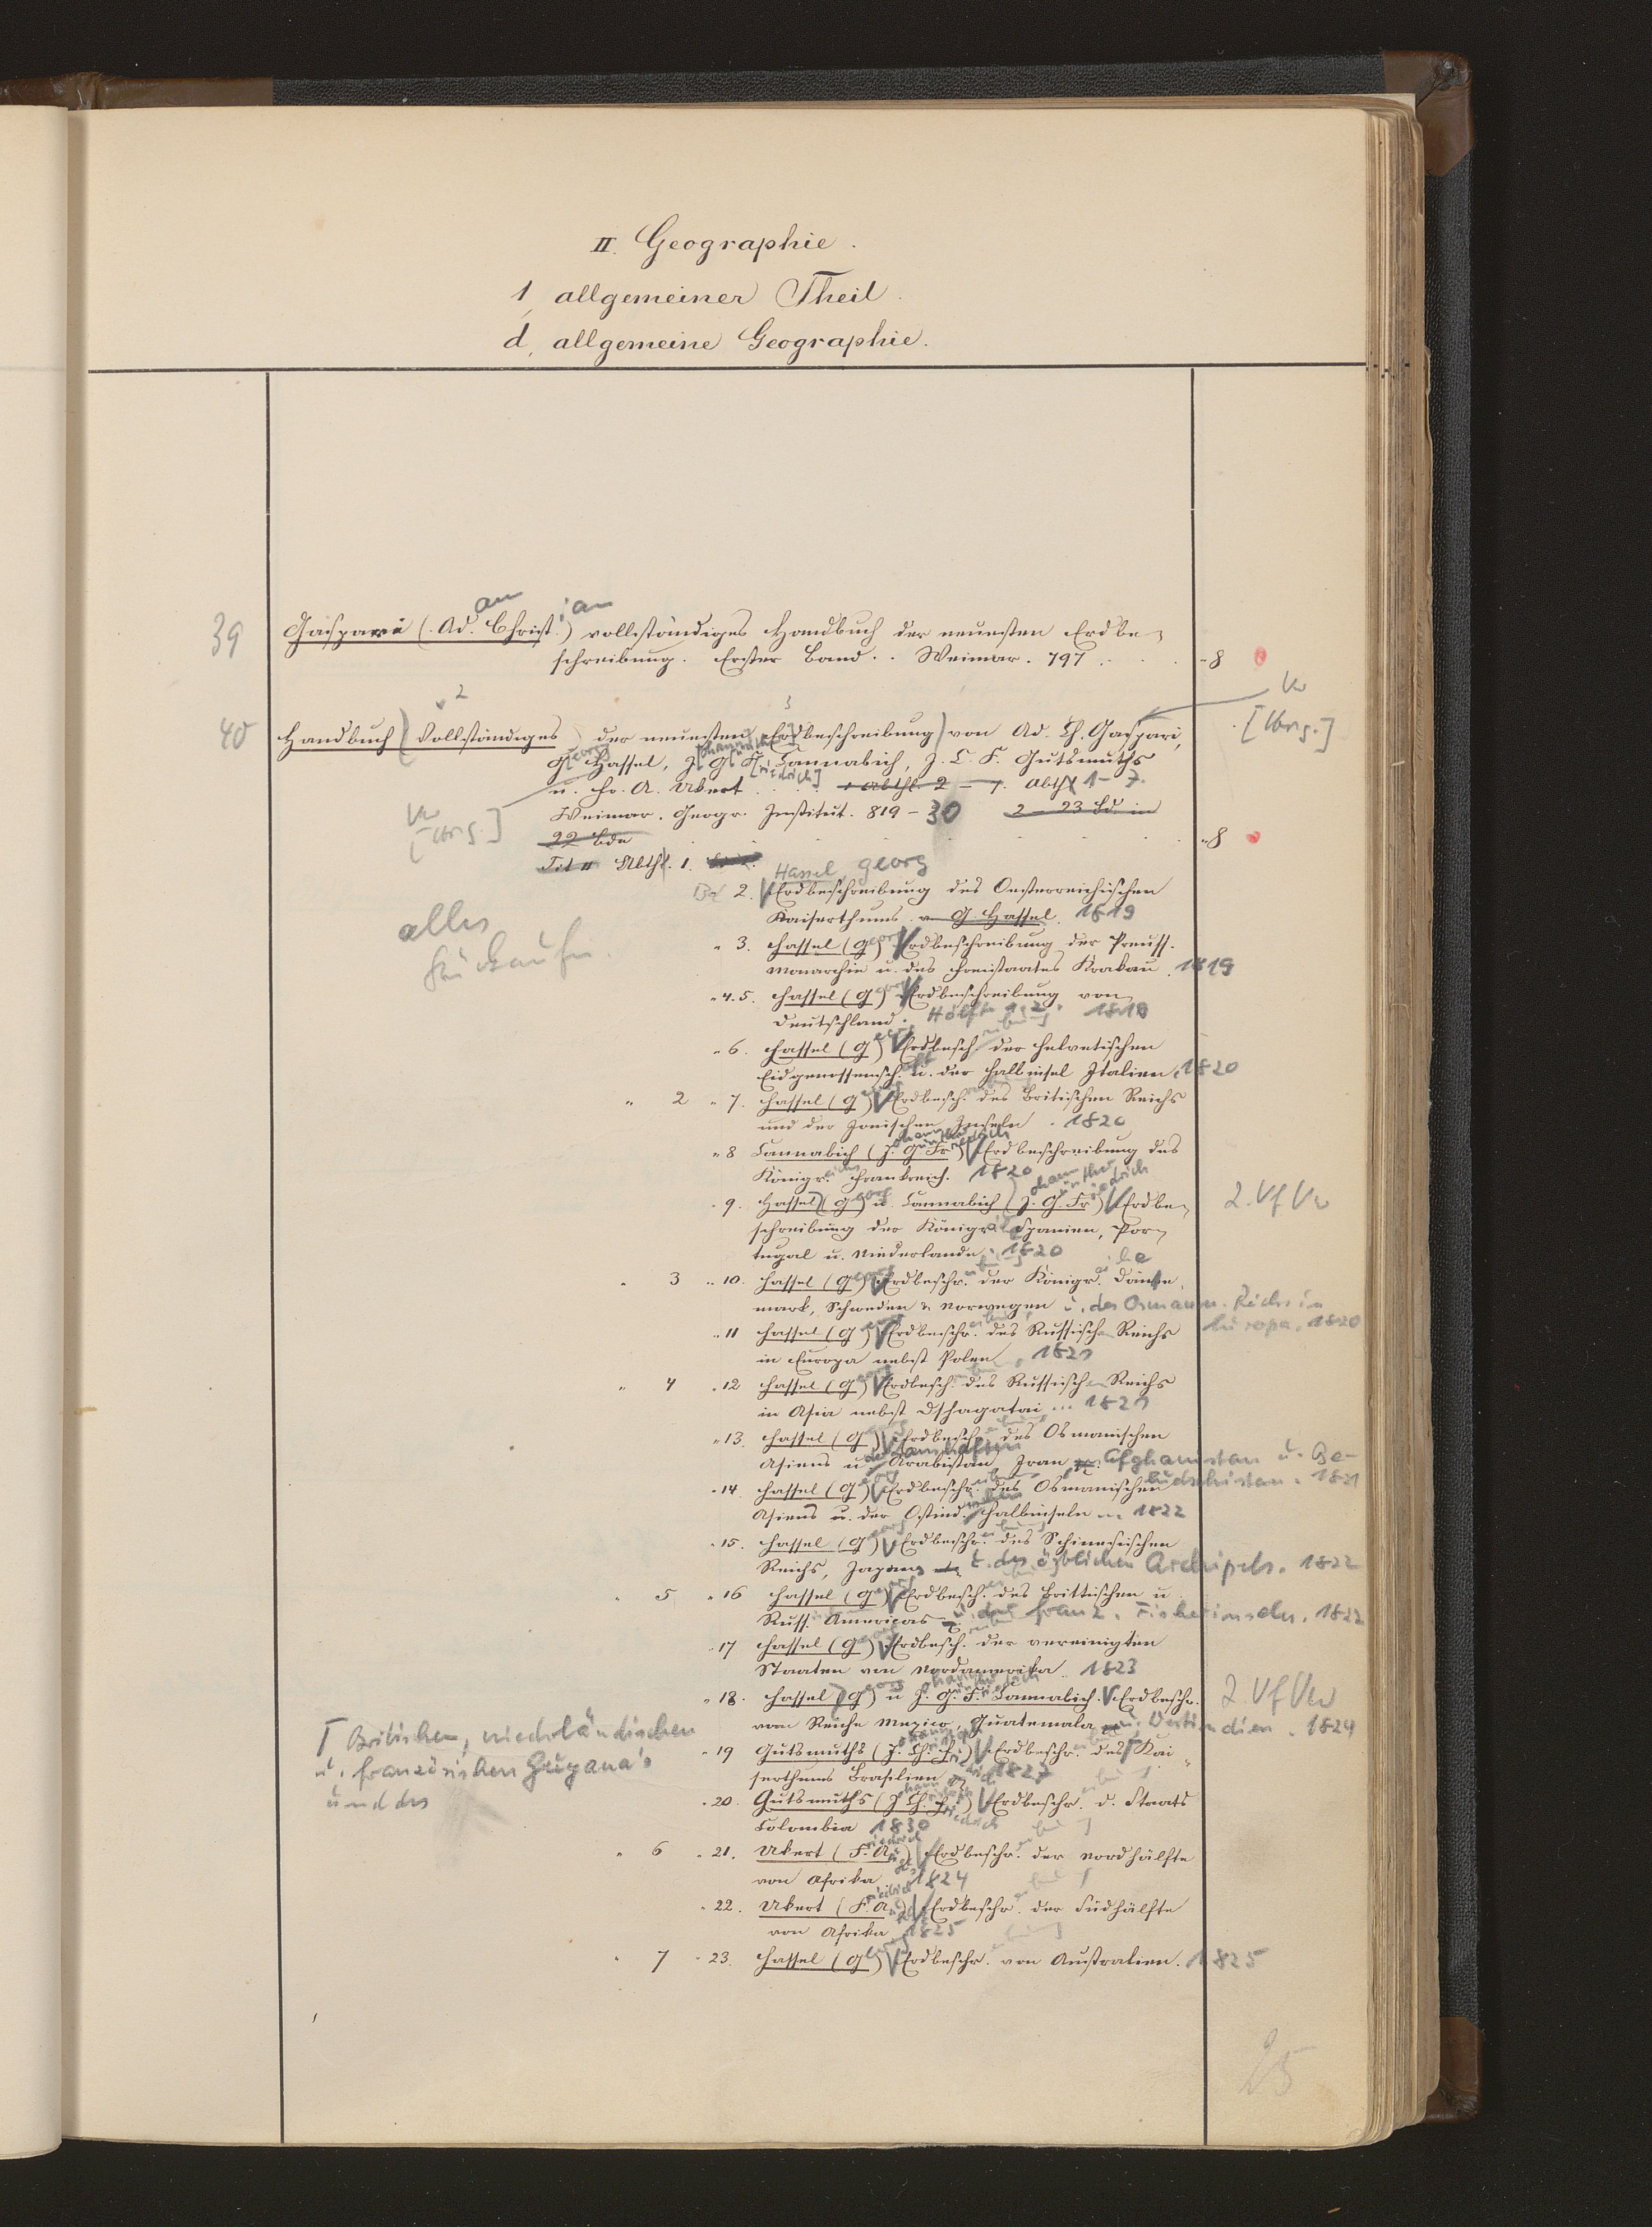 II. Geographie.
1, allgemeiner Theil.
d, allgemeine Geographie.
39 Gaspari (Ad.an Christ.ian) vollständiges Handbuch der neuesten Erdbe-
schreibung. Erster Band. Weimar. 797 . . . 8
Vw
2 3
40 Handbuch (Vollständiges) der neuesten Erdbeschreibung) von Ad. Ch. Gaspari,
G.eorg Hassel, J. G. F. Cannabich, J. C. F. Gutsmuths
u. Fr. A. Ukert . . . 1 Abthl. 2 – 7. Abth. 1–7.
Weimar. Geogr. Institut. 819 – 30 2 – 23 Bd. in
22 Bde 8
Vw
Abthl. 1.
Hassel, georg
Bd 2. Erdbeschreibung des Oesterreichischen
Kaiserthums v. G. Hassel. 1819
alles
" 3. Hassel (Georg) Erdbeschreibung der Preuss.
Monarchie u. des Freistaates Krakau. 1819
" 4.5. Hassel (Georg) Erdbeschreibung von
Deutschland. Hälfte 1,2. 1819
" 6. Hassel (G) Erdbesch.reibung der helvetischen
Eidgenossensch.aft u. der Halbinsel Italien. 1820
" 2 " 7. Hassel (G) Erdbesch. des Britischen Reichs
und der Jonischen Inseln. 1820
" 8 Cannabich (J. G. Fr) Erdbeschreibung des
Königr.eichs Frankreich. 1820
" 9. Hassel (Georg) u. Cannabich (J. G. Fr) Erdbe- 2. Vf Vw
schreibung der Königr. Spanien, Por-
tugal u. Niederlande. 1820
" 3 " 10. Hassel (Georg) Erdbeschr. der Königr. Däne-
mark, Schweden & Norwegen u. des Osmann. Reichs in
Europa. 1820
" 11 Hassel (G) Erdbeschr. des Russischen Reichs
in Europa nebst Polen. 1821
" 4 " 12 Hassel (G) Erdbesch. des Russischen Reichs
in Asia nebst Dschagatai ... 1821
" 13. Hassel (G) Erdbeschr. des Osmanischen
Asiens u. Arabistan Iran Afghanistan u. Be-
ludschistan. 1821
" 14. Hassel (G) Erdbeschr. des Osmanischen
Asiens u. der Ostind. Halbinseln 1822
" 15. Hassel (G) Erdbeschr. des Schinesischen
Reichs, Japans u. des östlichen Archipels. 1822
" 5 " 16 Hassel (G) Erdbesch. des Brittischen u
Russ. Americas u. der franz. Fischerinseln. 1822
" 17 Hassel (G) Erdbesch. der vereinigten
Staaten von Nordamerika. 1823
" 18. Hassel (G) u J. G. F. Cannabich. Erdbeschr. 2. Vf Vw
vom Reiche Mexico, Guatemala u. Westindien. 1824
Γ Britischen, niederländischen
u. französischen Guyana's
und des
" 19 Gutsmuths (J. Ch. Fr.) Erdbeschr. des Γ Kai-
serthums Brasilien 1827
" 20. Gutsmuths (J Ch. Fr) Erdbeschr. d. Staats
Colombia 1830
" 6 " 21. Ukert (F. A) Erdbeschr. der Nordhälfte
von Afrika 1824
" 22. Ukert (F. A) Erdbeschr. der Südhälfte
von Afrika 1825
" 7 " 23. Hassel (Georg) Erdbeschr. von Australien. 1825
25